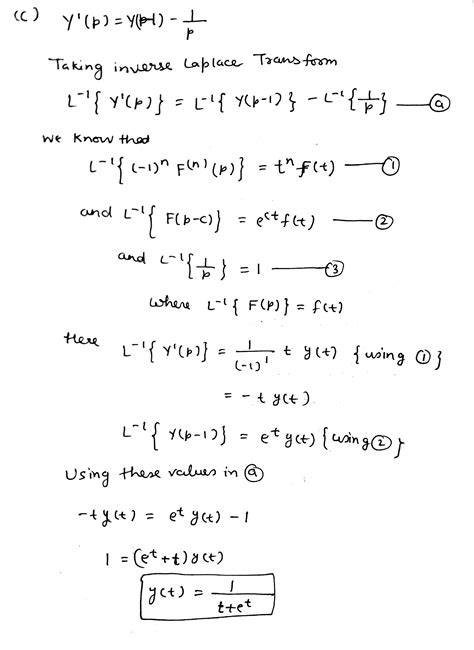 (c) Y'(p) = Y(p-1) - 1/p
Taking inverse Laplace Transform
L⁻¹{ Y'(p)} = L⁻¹{ Y(p-1)} - L⁻¹{1/p} — ⓐ
we know that
L⁻¹{ (-1)ⁿ F⁽ⁿ⁾(p)} = tⁿ f(t) — ①
and L⁻¹{ F(p-c)} = eᶜᵗ f(t) — ②
and L⁻¹{1/p} = 1 — ③
where L⁻¹{ F(p)} = f(t)
Here L⁻¹{ Y'(p)} = 1/(-1)¹ t y(t) {using ①}
= - t y(t).
L⁻¹{ Y(p-1)} = eᵗ y(t) {using ②}
Using these values in ⓐ
-t y(t) = eᵗ y(t) - 1
1 = (eᵗ + t) y(t)
y(t) = 1/(t+eᵗ)